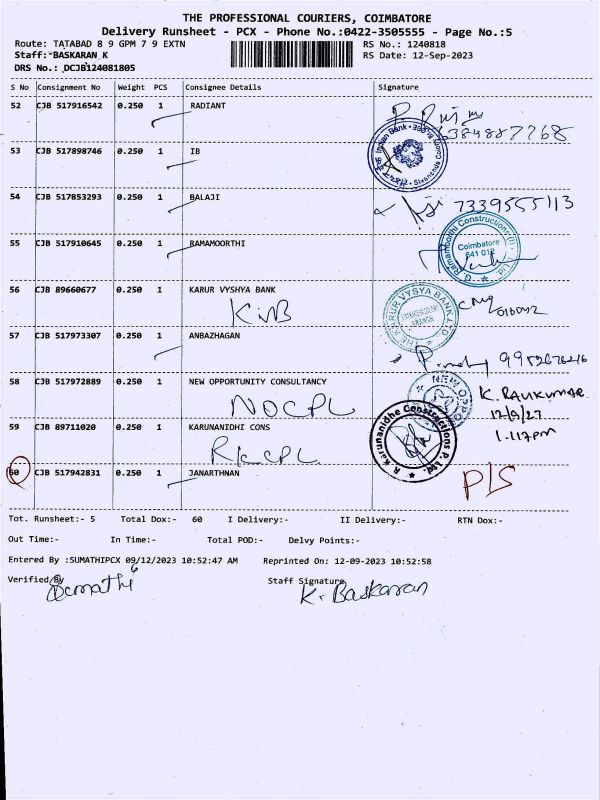 THE PROFESSIONAL COURIERS, COIMBATORE
Delivery Runsheet - PCX - Phone No.:0422-3505555 - Page No.:5
Route: TATABAD 8 9 GPM 7 9 EXTN RS No.: 1240818
Staff: BASKARAN K RS Date: 12-Sep-2023
DRS No.: DCJB124081805
S No Consignment No Weight PCS Consignee Details Signature
52 CJB 517916542 0.250 1 RADIANT
53 CJB 517898746 0.250 1 IB
Indian Bank
54 CJB 517853293 0.250 1 BALAJI 7339555113
55 CJB 517910645 0.250 1 RAMAMOORTHI
Ramamoorthi Constructions (I) P
Coimbatore
641 012
56 CJB 89660677 0.250 1 KARUR VYSHYA BANK
KVB
THE KARUR VYSYA BANK LTD
57 CJB 517973307 0.250 1 ANBAZHAGAN
58 CJB 517972889 0.250 1 NEW OPPORTUNITY CONSULTANCY
NOCPL
NEW OPPO
K. RAVIKUMAR
1.117pm
59 CJB 89711020 0.250 1 KARUNANIDHI CONS
RKCPL
R. Karunanidhe Constructions P. Ltd.
60 CJB 517942831 0.250 1 JANARTHNAN
P/S
Tot. Runsheet:- 5 Total Dox:- 60 I Delivery:- II Delivery:- RTN Dox:-
Out Time:- In Time:- Total POD:- Delvy Points:-
Entered By :SUMATHIPCX 09/12/2023 10:52:47 AM Reprinted On: 12-09-2023 10:52:58
Verified By Staff Signature
K. Baskaran